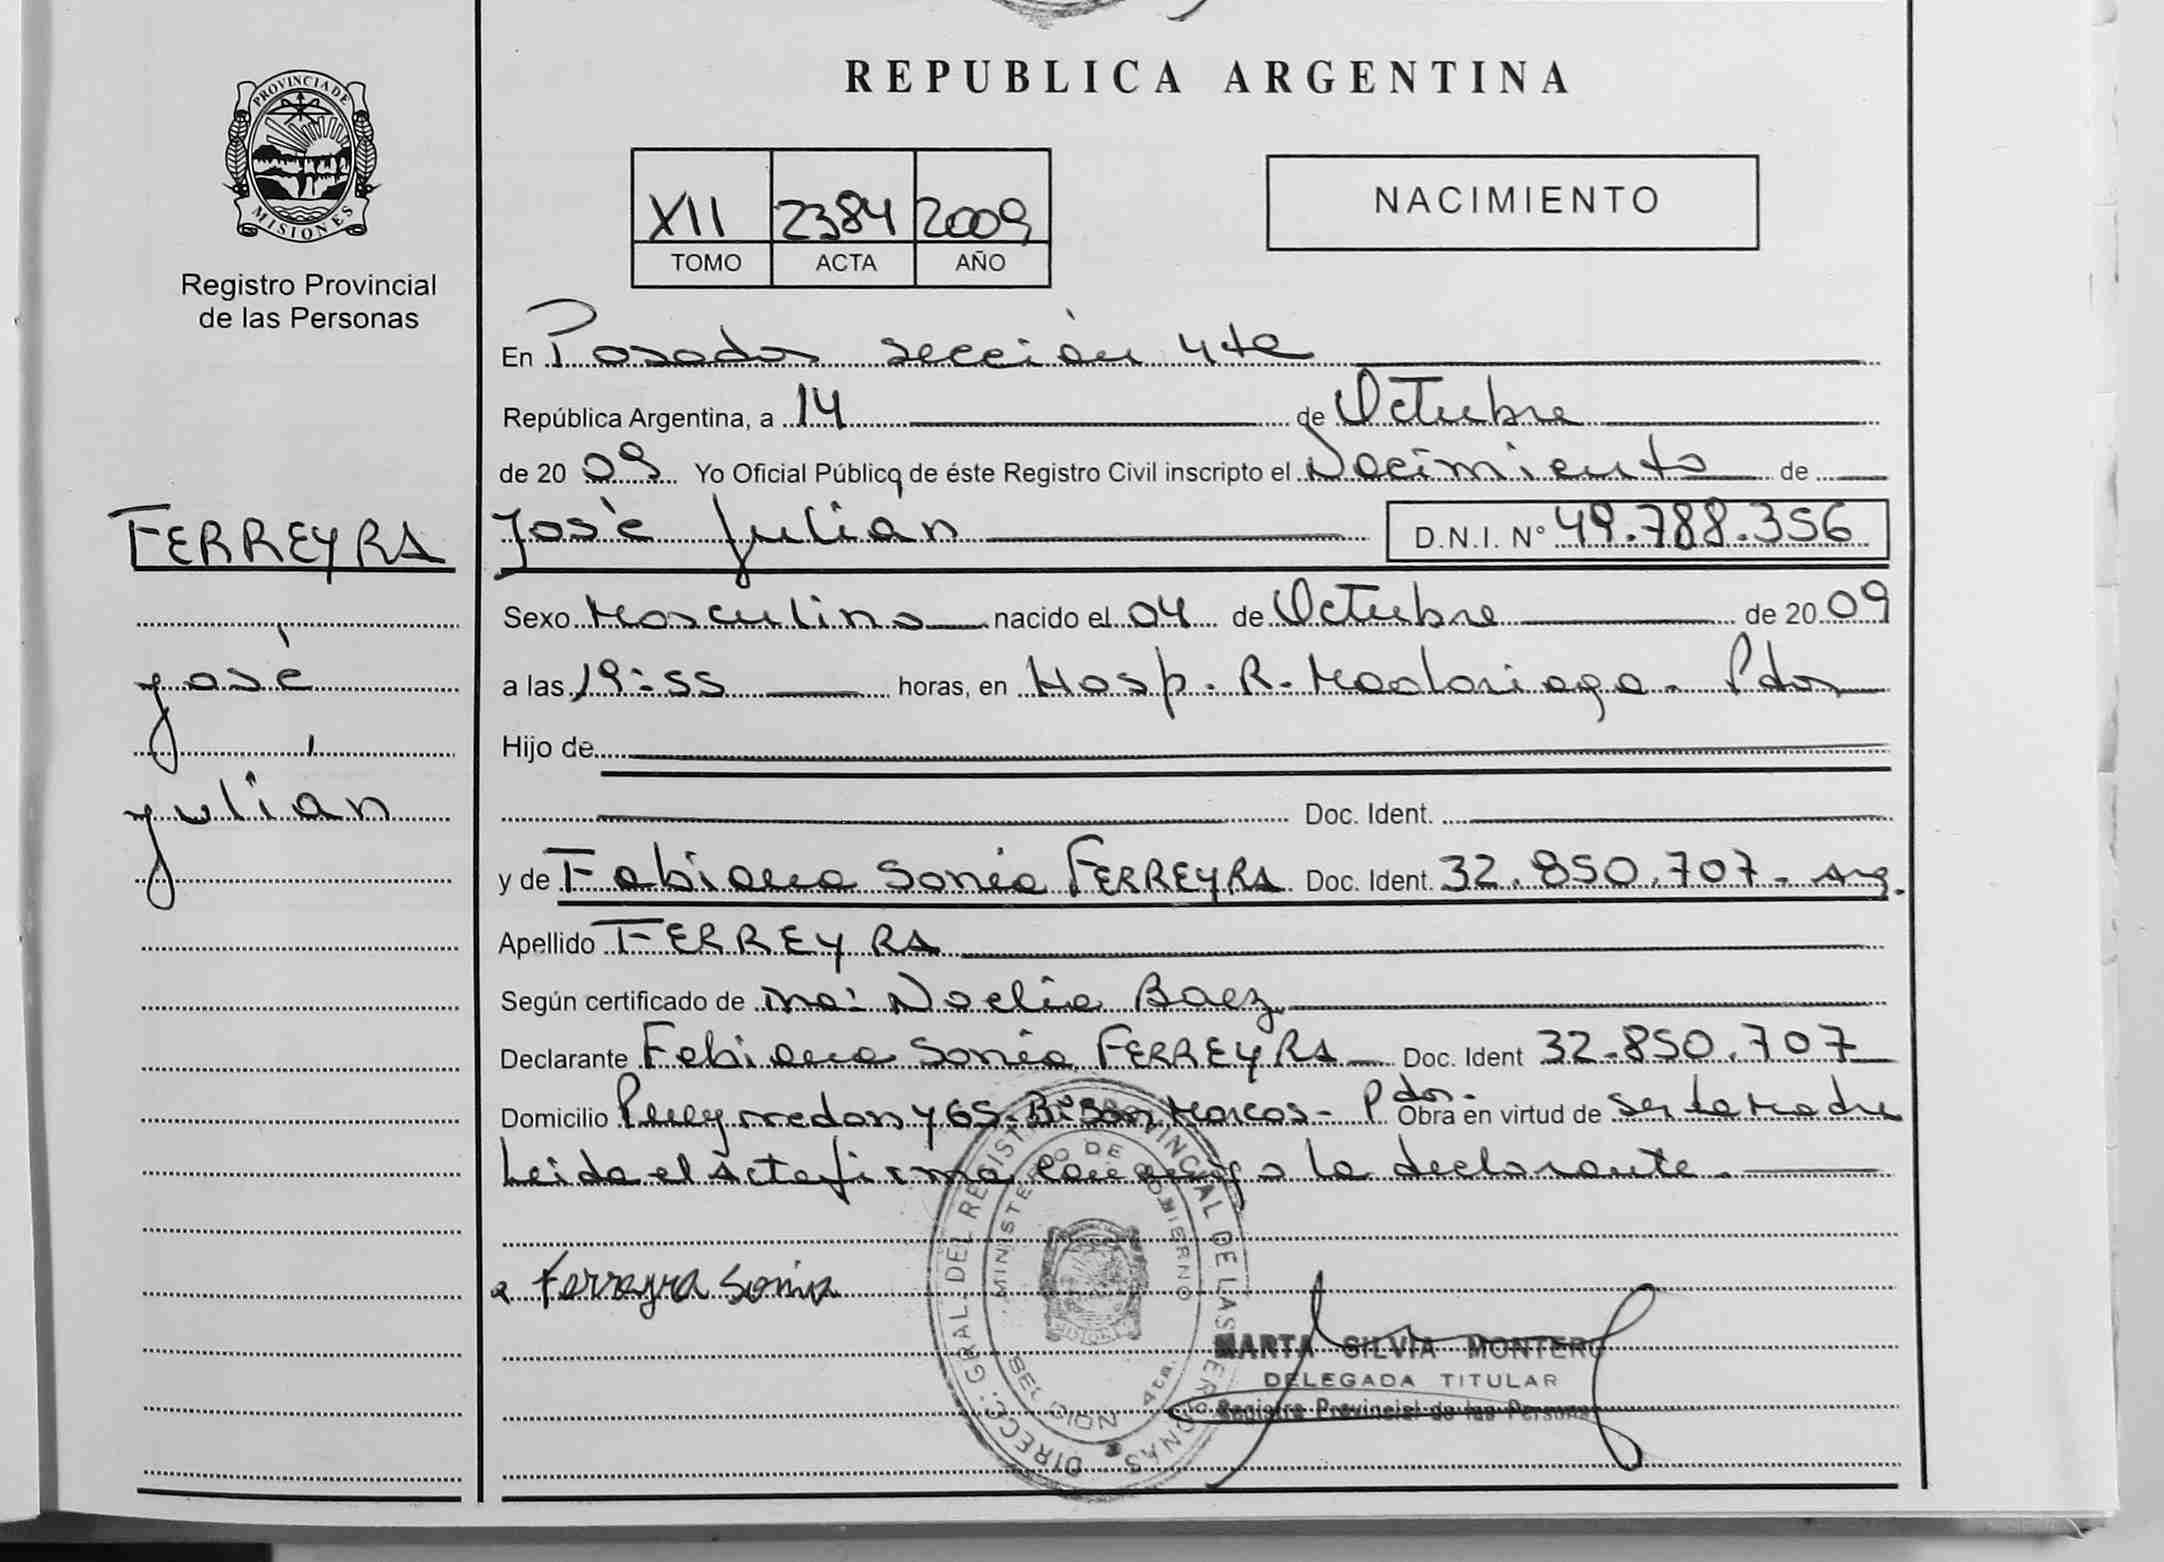 REPUBLICA ARGENTINA
PROVINCIA DE
MISIONES
Registro Provincial
de las Personas
XII 2384 2009
TOMO ACTA AÑO
NACIMIENTO
En Posadas sección 4ta
República Argentina, a 14 de Octubre
de 2009 Yo Oficial Público de éste Registro Civil inscripto el Nacimiento de
FERREYRA
José Julián D.N.I. Nº 49.788.356
Sexo Masculino nacido el 04 de Octubre de 2009
José
a las 19:55 horas, en Hosp. R. Madariaga - Pdas
Hijo de
Julián
Doc. Ident.
y de Fabiana Sonia FERREYRA Doc. Ident. 32.850.707 - Arg.
Apellido FERREYRA
Según certificado de Noelia Baez
Declarante Fabiana Sonia FERREYRA Doc. Ident 32.850.707
Domicilio Pueyrredon y 65 - Bº San Marcos - Pdas. Obra en virtud de ser la Madre
Leida el Acta firma conmigo la declarante.
Ferreyra Sonia
DIRECC. GRAL DEL REGISTRO PROVINCIAL DE LAS PERSONAS
MINISTERIO DE GOBIERNO
SECCION 4ta.
MARTA SILVIA MONTERO
DELEGADA TITULAR
Registro Provincial de las Personas